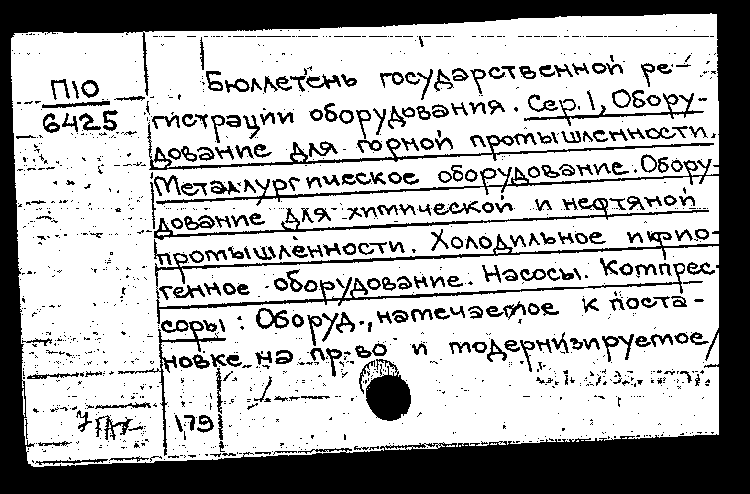 П10
6425
Бюллетень государственной ре-
гистрации оборудования. Сер. 1, Обору-
дование для горной промышленности.
Металлургическое оборудование. Обору-
дование для химической и нефтяной
промышленности. Холодильное и крио-
генное оборудование. Насосы. Компрес-
соры : Оборуд., намечаемое к поста-
новке на пр-во и модернизируемое /
179